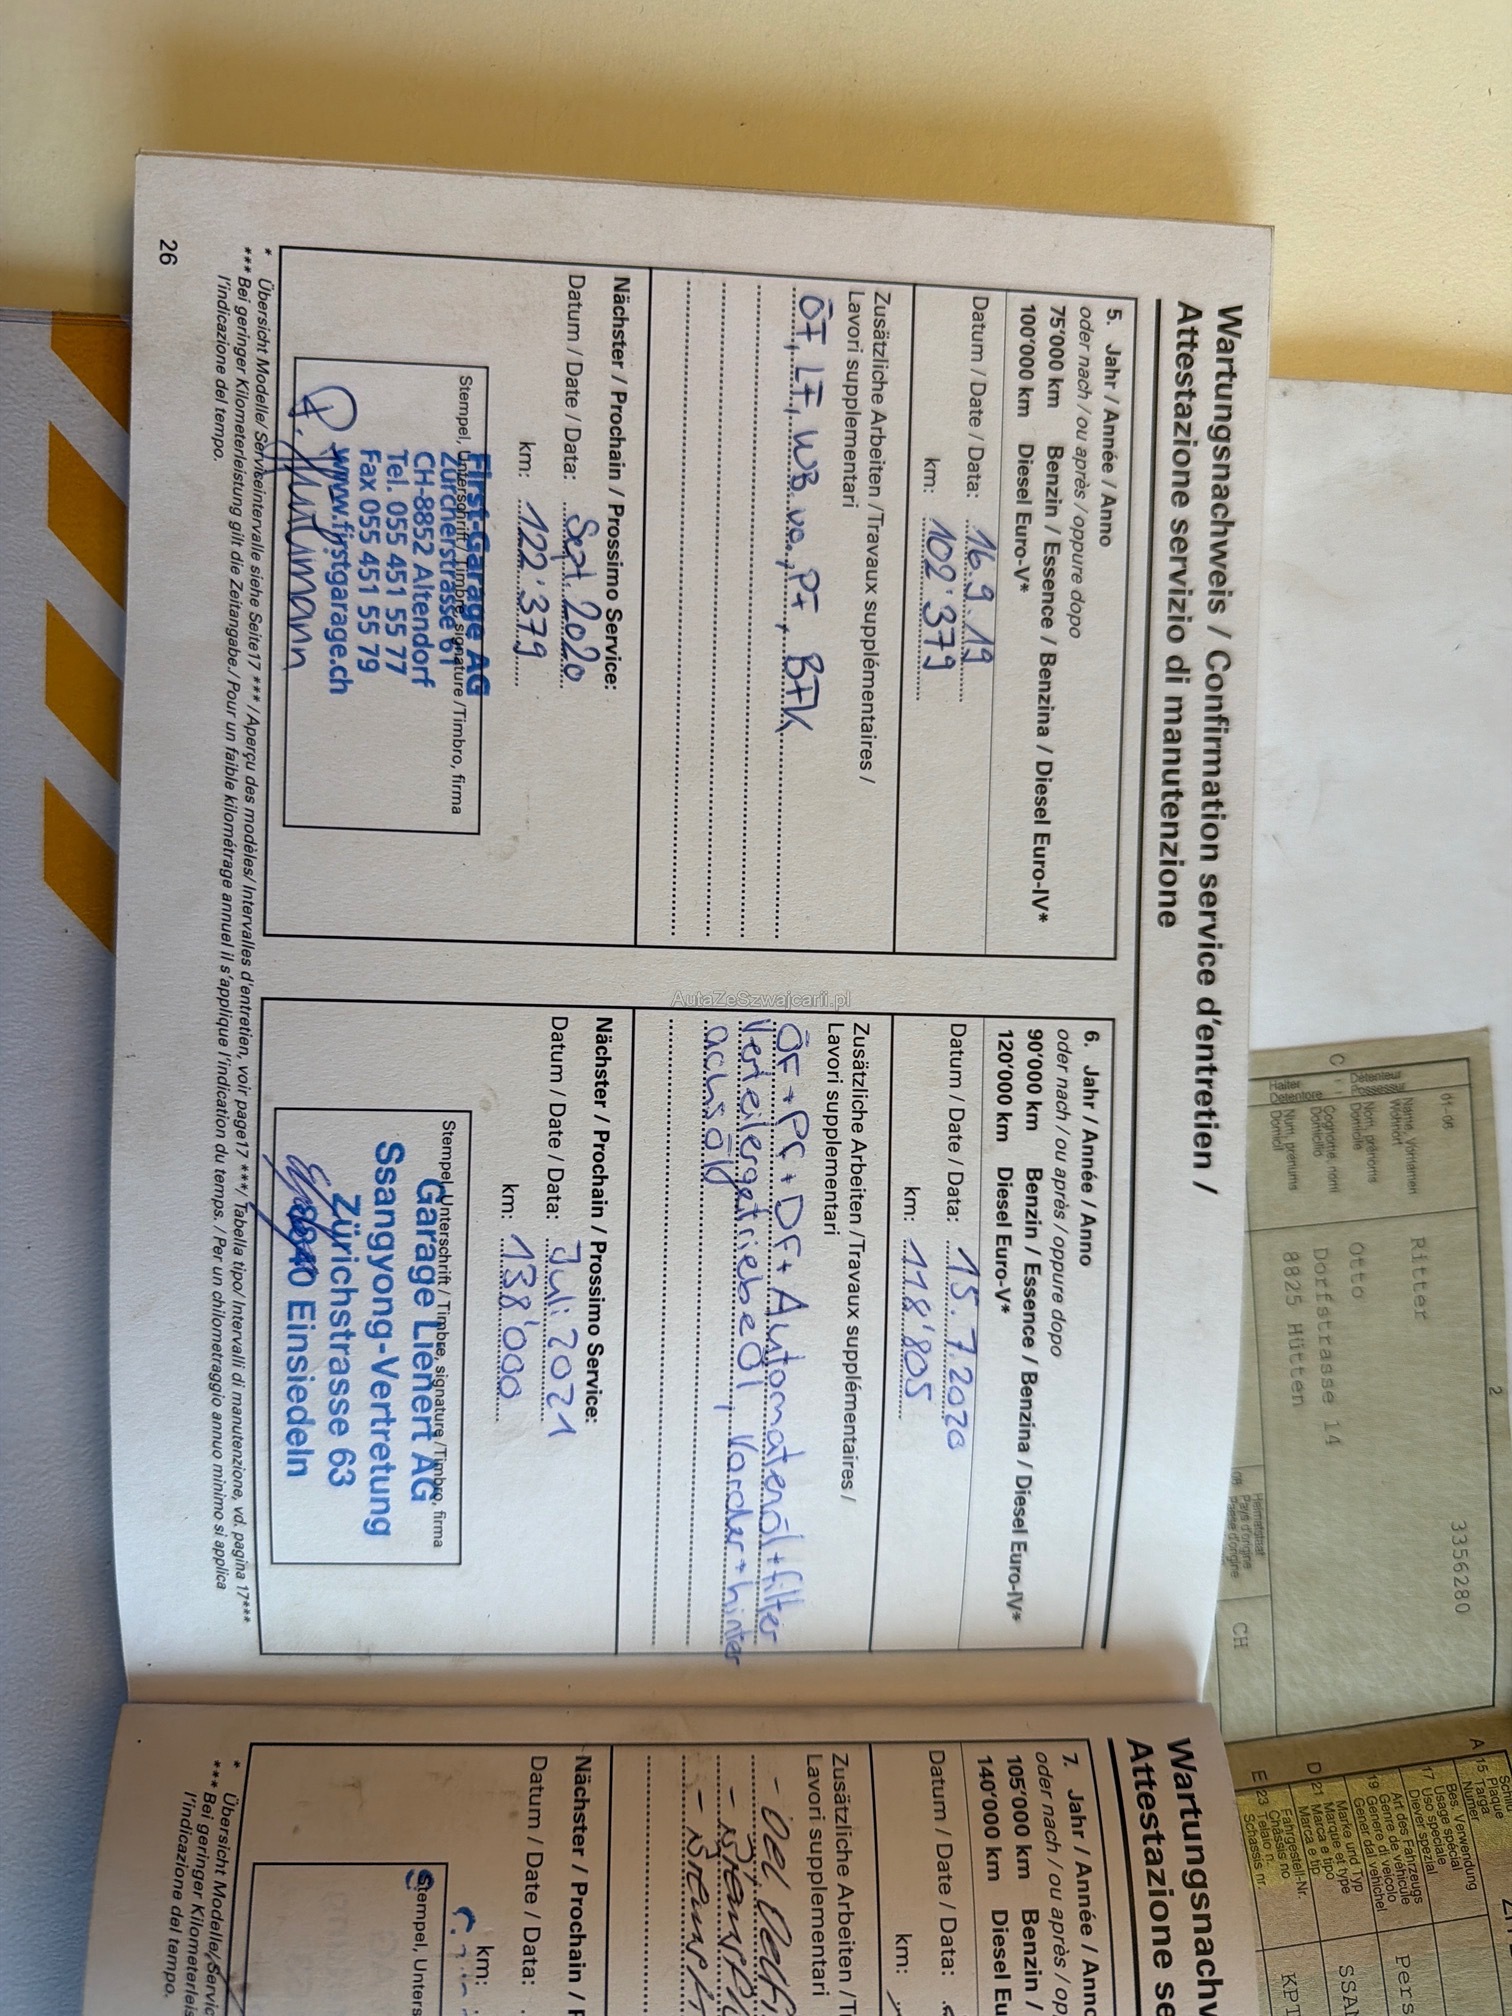 Wartungsnachweis / Confirmation service d'entretien /
Attestazione servizio di manutenzione
5. Jahr / Année / Anno
oder nach / ou après / oppure dopo
75'000 km Benzin / Essence / Benzina / Diesel Euro-IV*
100'000 km Diesel Euro-V*
Datum / Date / Data: 16.9.19
km: 102'379
Zusätzliche Arbeiten / Travaux supplémentaires /
Lavori supplementari
ÖF, LF, WB vo., PF, BFK
Nächster / Prochain / Prossimo Service:
Datum / Date / Data: Sept. 2020
km: 122'379
Stempel, Unterschrift / Timbre, signature / Timbro, firma
First-Garage AG
Zürcherstrasse 61
CH-8852 Altendorf
Tel. 055 451 55 77
Fax 055 451 55 79
www.firstgarage.ch
6. Jahr / Année / Anno
oder nach / ou après / oppure dopo
90'000 km Benzin / Essence / Benzina / Diesel Euro-IV*
120'000 km Diesel Euro-V*
Datum / Date / Data: 15.7.2020
km: 118'805
Zusätzliche Arbeiten / Travaux supplémentaires /
Lavori supplementari
ÖF + PF + DF + Automatenöl + filter
Verteilergetriebeöl, Vorder + hinter
achsöl
Nächster / Prochain / Prossimo Service:
Datum / Date / Data: Juli 2021
km: 138'000
Stempel, Unterschrift / Timbre, signature / Timbro, firma
Garage Lienert AG
Ssangyong-Vertretung
Zürichstrasse 63
8840 Einsiedeln
* Übersicht Modelle/ Serviceintervalle siehe Seite17 *** / Aperçu des modèles/ Intervalles d'entretien, voir page17 ***/ Tabella tipo/ Intervalli di manutenzione, vd. pagina 17***
*** Bei geringer Kilometerleistung gilt die Zeitangabe./ Pour un faible kilométrage annuel il s'applique l'indication du temps. / Per un chilometraggio annuo minimo si applica
l'indicazione del tempo.
26
AutaZeSzwajcarii.pl
Wartungsnachw
Attestazione se
7. Jahr / Année / Anno
oder nach / ou après / op
105'000 km Benzin /
140'000 km Diesel Eu
Datum / Date / Data:
km:
Zusätzliche Arbeiten / T
Lavori supplementari
Nächster / Prochain / P
Datum / Date / Data:
km:
Stempel, Unters
* Übersicht Modelle/ Servic
*** Bei geringer Kilometerleis
l'indicazione del tempo.
2
3356280
01-06
Name, Vornamen
Wohnort
Nom, prénoms
Domicile
Cognome, nomi
Domicilio
Num, prenums
Domicil
C
Ritter
Otto
Dorfstrasse 14
8825 Hütten
Heimatstaat
Pays d'origine
CH
A
15 Targa
Bes. Verwendung
Usage spécial
17 Uso speciale
Diever spezial
Art des Fahrzeugs
Genre de véhicule
19 Genere di veicolo
Gener dal vehichel
Pers
Marke und Typ
Marque et type
D 21 Marca e tipo
Marca e tip
SSA
Fahrgestell-Nr.
Châssis no
E 23 Telaio n.
Schassis nr.
KP